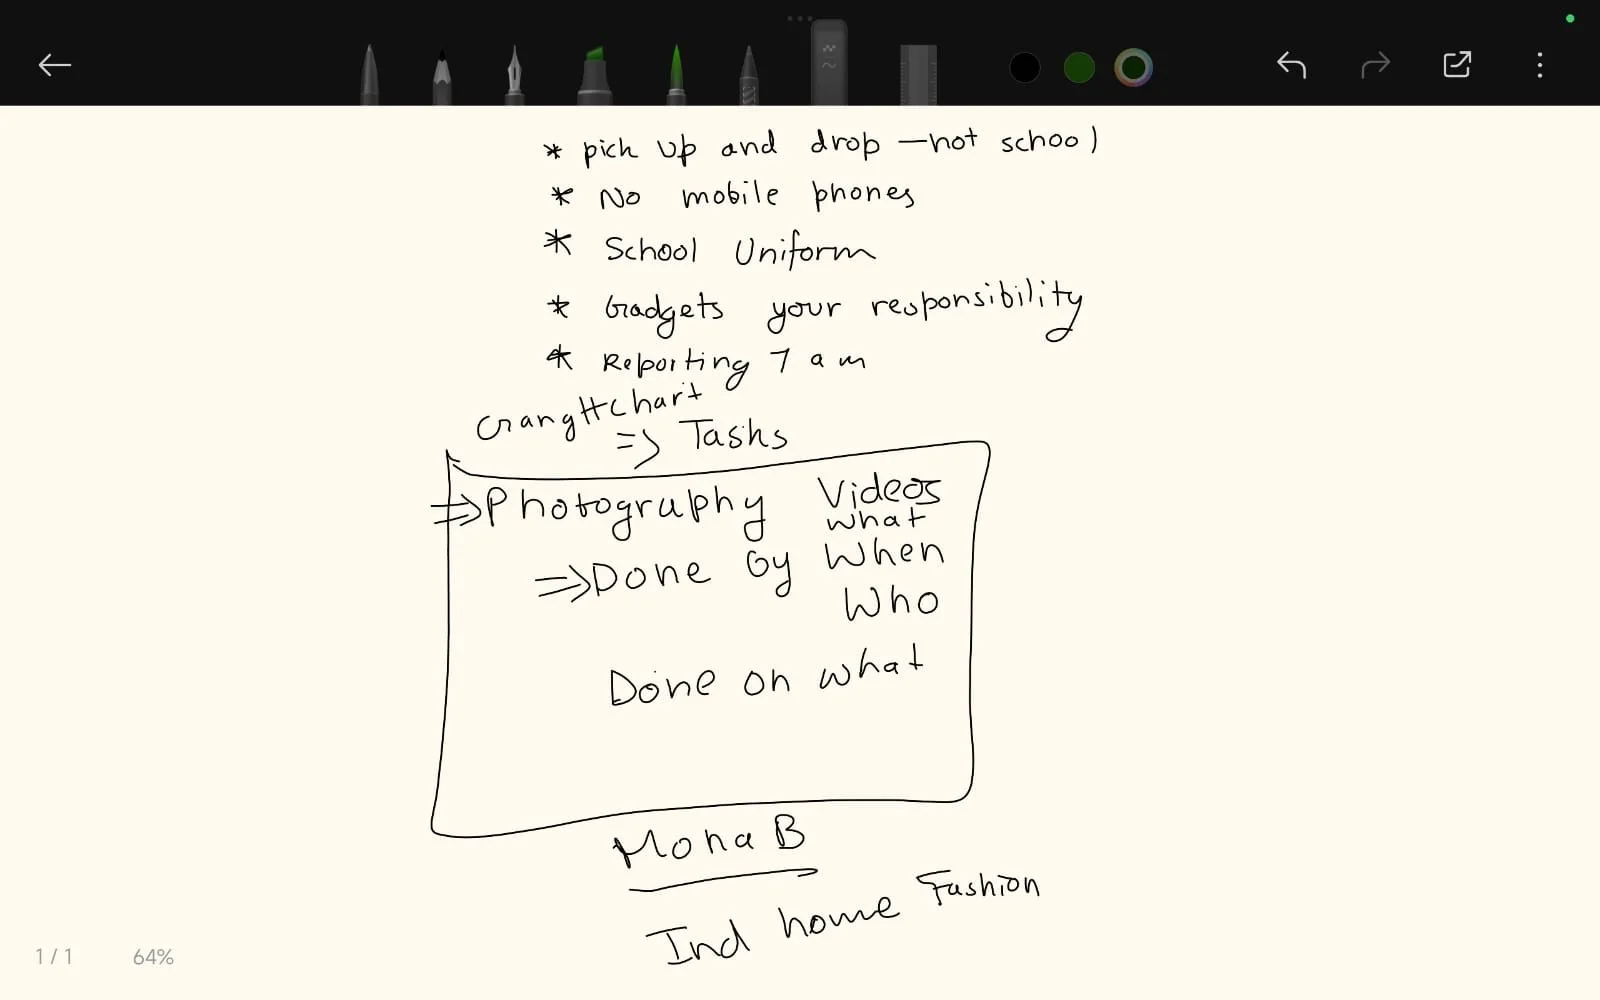 * pick up and drop —not school
* No mobile phones
* School Uniform
* Gadgets your responsibility
* Reporting 7 am
GrangttChart
=> Tasks
=> Photography Videos
what
=> Done by When
Who
Done on what
Mona B
Ind home Fashion
1 / 1 64%